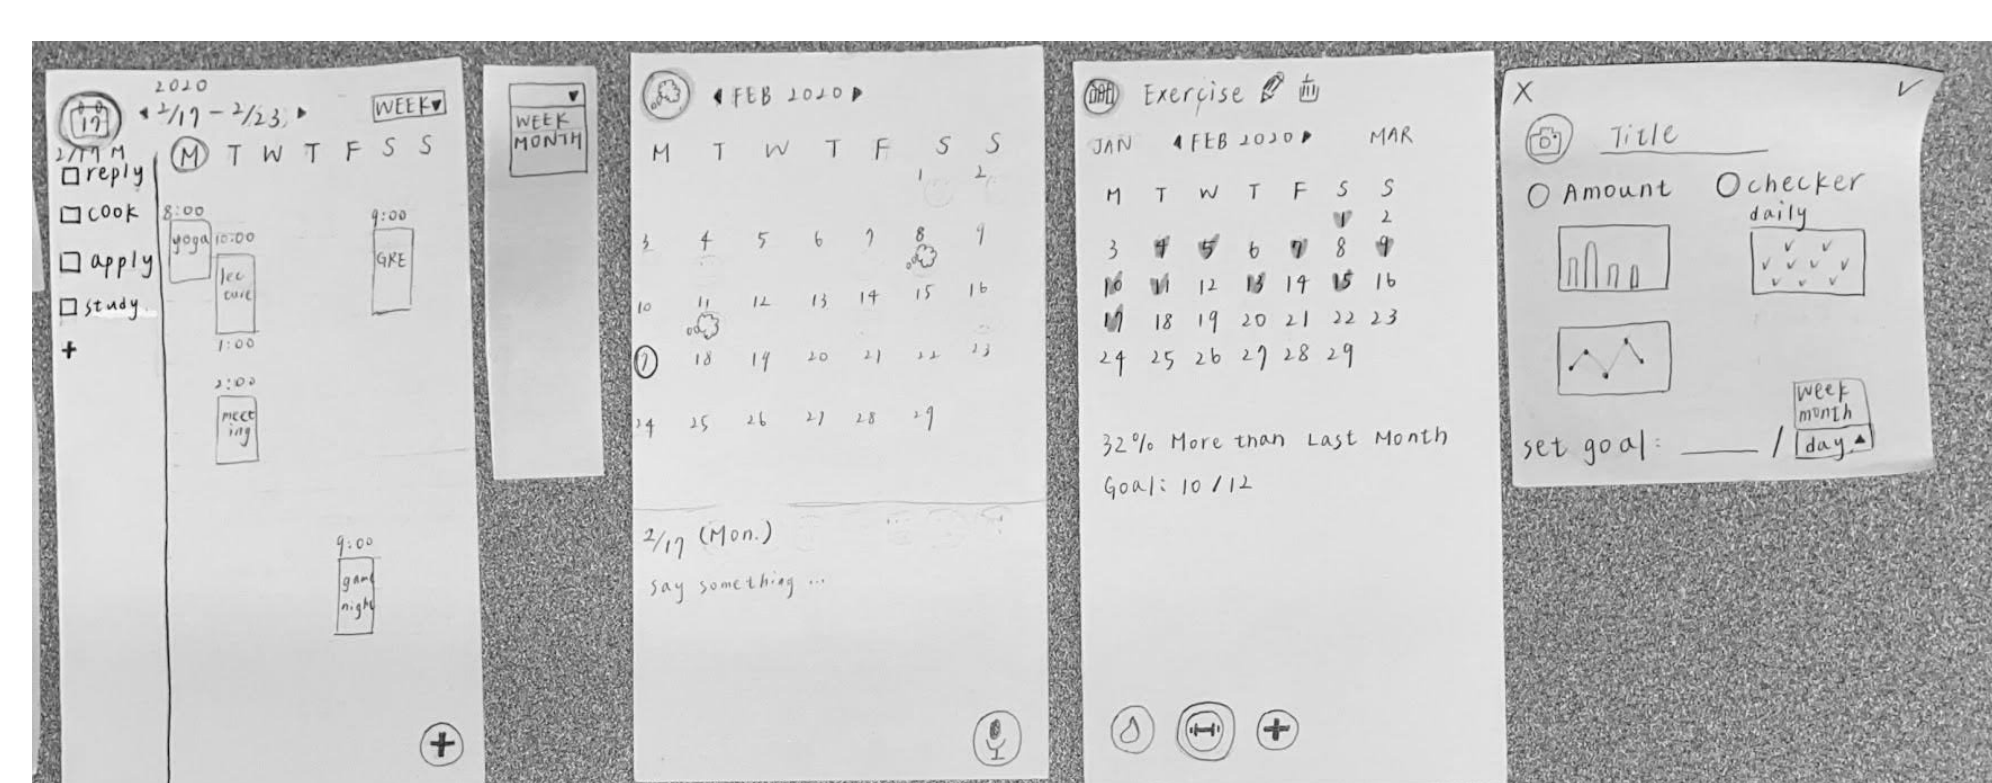 2020
2/17 - 2/23
WEEK
17
2/17 M
M T W T F S S
reply
cook
apply
study
+
8:00
yoga
10:00
lec
ture
1:00
2:00
meet
ing
9:00
GRE
9:00
game
night
+
WEEK
MONTH
FEB 2020
M T W T F S S
1 2
3 4 5 6 7 8 9
10 11 12 13 14 15 16
17 18 19 20 21 22 23
24 25 26 27 28 29
2/17 (Mon.)
say something ...
Exercise
JAN FEB 2020 MAR
M T W T F S S
1 2
3 4 5 6 7 8 9
10 11 12 13 14 15 16
17 18 19 20 21 22 23
24 25 26 27 28 29
32% More than Last Month
Goal: 10 / 12
+
X
Title
Amount
checker
daily
week
month
set goal: ____ / day